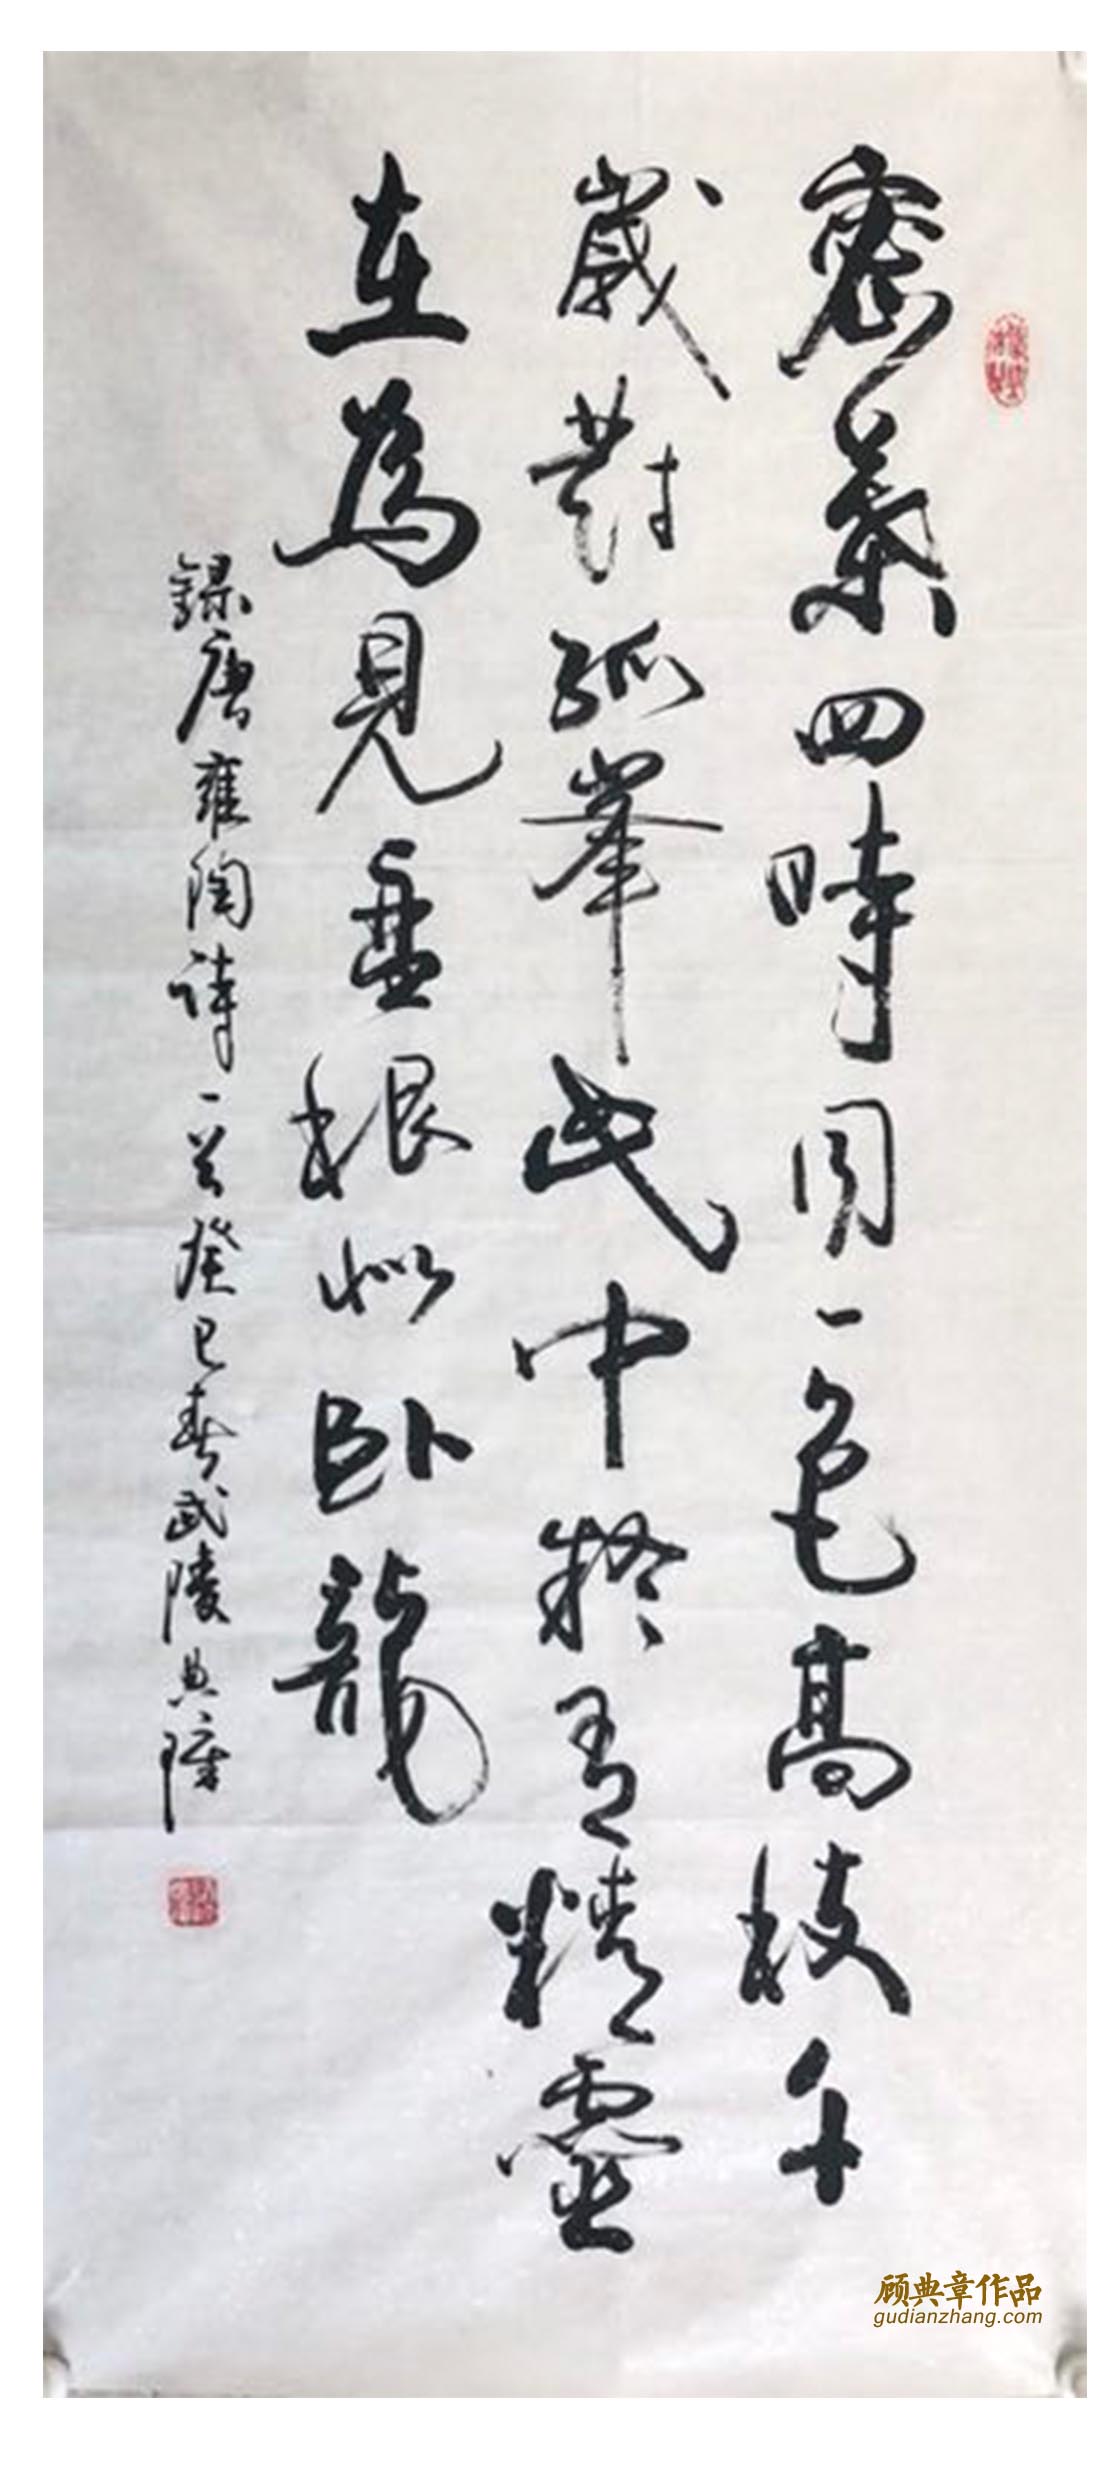 密葉四時同一色高枝千
歲對孤峯此中疑有精靈
在為見盤根似卧龍
錄唐雍陶詩一首癸巳春武陵典璋
顾典章作品
gudianzhang.com